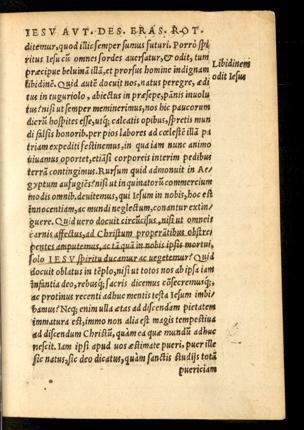 IESV AVT. DES. ERAS. ROT.
ditemur, quod illic semper sumus futuri. Porrò spi
ritus Iesu cū omnes sordes auersatur, & odit, tum
præcipue beluinā illā, et prorsus homine indignam
libidinē. Quid autē docuit nos, natus peregre, ædi
tus in tuguriolo, abiectus in præsepe, pānis inuolu
tus? nisi ut semper meminerimus, nos hic paucorum
dierū hospites esse, utq; calcatis opibus, spretis mun
di falsis honorib, per pios labores ad cœlestē illā pa
triam expediti festinemus, in qua iam nunc animo
uiuamus oportet, etiāsi corporeis interim pedibus
terrā contingimus. Rursum quid admonuit in Ae=
gyptum aufugiēs? nisi ut inquinatorū commercium
modis omnib. deuitemus, qui Iesum in nobis, hoc est
innocentiam, ac mundi neglectum, conantur extin=
guere. Quid uero docuit circūcisus, nisi ut omneis
carnis affectus, ad Christum properātibus obstre=
pentes amputemus, ac tā quā in nobis ipsis mortui,
solo IESV spiritu ducamur ac uegetemur? Quid
docuit oblatus in tēplo, nisi ut totos nos ab ipsa iam
infantia deo, rebusq; sacris dicemus cōsecremusq;,
ac protinus recenti adhuc mentis testa Iesum imbi=
bamus? Neq; enim ulla ætas ad discendam pietatem
immatura est, immo non alia est magis tempestiua
ad discendum Christū, quàm ea quæ mundū adhuc
nescit. Iam ipsi apud uos æstimate pueri, puer ille
sic natus, sic deo dicatus, quàm sanctis studijs totā
puericiam
Libidinem
odit Iesus